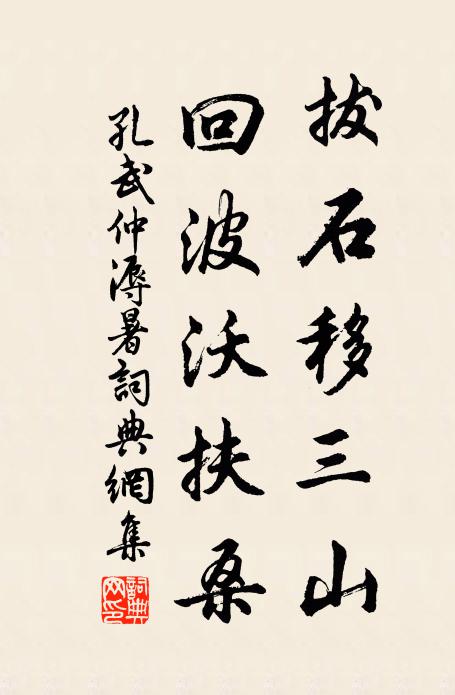 拔石移三山
回波沃扶桑
孔武仲溽暑詞典網集
詞典
网印